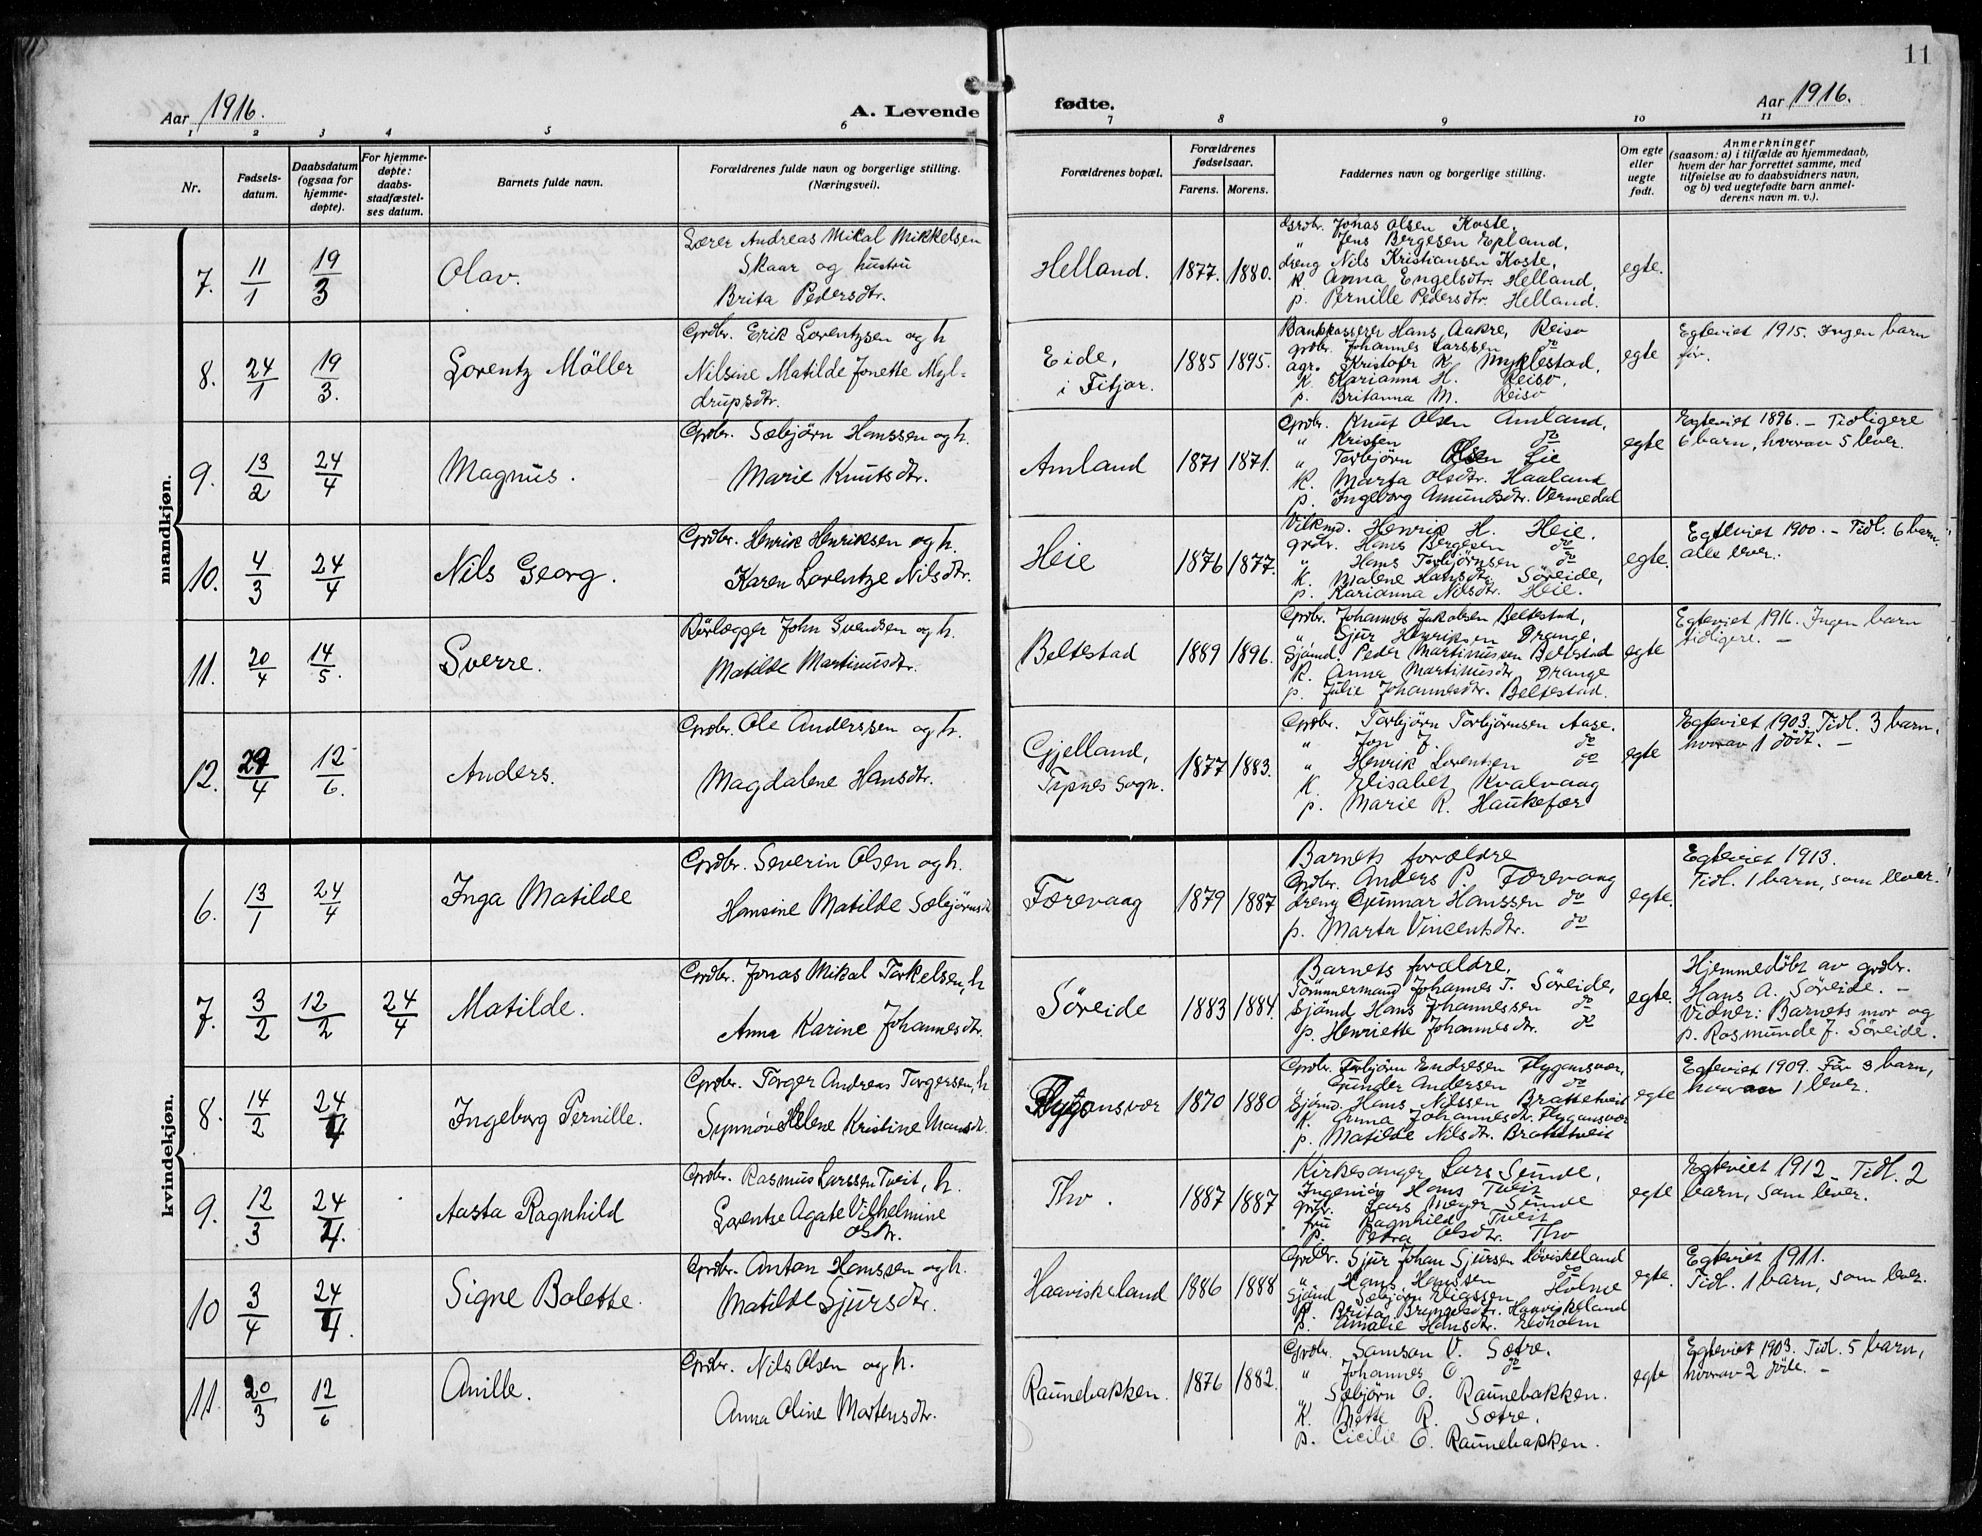 11
Aar 1916.
A. Levende
fødte.
Aar 1916.
1 2 3 4 5 6 7 8 9 10 11
Nr.
Fødsels-
datum.
Daabsdatum
(ogsaa for
hjemme-
døpte).
For hjemme-
døpte:
daabs-
stadfæstel-
ses datum.
Barnets fulde navn.
Forældrenes fulde navn og borgerlige stilling.
(Næringsvei).
Forældrenes bopæl.
Forældrenes
fødselsaar.
Farens. Morens.
Faddernes navn og borgerlige stilling.
Om egte
eller
uegte
født.
Anmerkninger
(saasom: a) i tilfælde av hjemmedaab,
hvem der har forrettet samme, med
tilføielse av to daabsvidners navn,
og b) ved uegtefødte barn anmel-
derens navn m. v.).
mandkjøn.
7. 11/1 19/3 Olav.
Lærer Andreas Mikal Mikkelsen
Skaar og hustru
Brita Pedersdtr.
Helland. 1877. 1880.
Grdbr. Jonas Olsen Koste,
" Jens Bergesen Epland,
dreng Nils Kristiansen Koste,
k. Anna Engelsdtr. Helland,
p. Pernille Pedersdtr. Helland.
egte.
8. 24/1 19/3. Lorentz Möller
Grdbr. Erik Lorentzsen og h
Nilsine Matilde Jonette Myl-
drupsdtr.
Eide,
i Fitjar.
1885 1895.
Bankkasserer Hans Aakre, Reisö
grdbr. Johannes Larssen do
agr. Kristofer K. Myklestad,
k. Karianna H. Reisö,
p. Britanna M. Reisö
egte
Egteviet 1915. Ingen barn
för.
9. 13/2 24/4 Magnus.
Grdbr. Sæbjörn Hanssen og h.
Marie Knutsdtr.
Amland 1871 1871.
Grdbr. Knut Olsen Amland,
" Kristen do
" Torbjörn Olsen Lie
k. Marta Olsdtr. Haaland
p. Ingeborg Amundsdtr. Vermedal
egte
Egteviet 1896. – Tidligere
6 barn, hvorav 5 lever.
10. 4/3 24/4 Nils Georg.
Grdbr. Henrik Henriksen og h.
Karen Lorentze Nilsdtr.
Heie 1876 1877.
Henrik H. Heie.
grdbr. Hans Bergesen do
" Hans Torbjörnsen do
k. Malene Hansdtr. Söreide,
p. Karianna Nilsdtr. Heie.
egte.
Egteviet 1900. – Tidl. 6 barn.
alle lever.
11. 20/4 14/5. Sverre.
Rörlægger John Svendsen og h.
Matilde Martinusdtr.
Beltestad 1889 1896.
Grdbr. Johannes Jakobsen Beltestad,
" Sjur Henriksen Drange,
Sjömd. Peder Martinussen Beltestad
k. Anna Martinusdtr Drange
p. Julie Johannesdtr. Beltestad.
egte
Egteviet 1916. Ingen barn
tidligere. –
12. 29/4 12/6. Anders.
Grdbr. Ole Anderssen og h.
Magdalene Hansdtr.
Gjelland,
Tysnes sogn.
1877 1883.
Grdbr. Torbjörn Torbjörnsen Aase.
" Jon J. do
" Henrik Lorentzen do
k. Elisabet Kvalvaag
p. Marie R. Haukefær
egte
Egteviet 1903. Tidl. 3 barn,
hvorav 1 dödt. –
kvindekjøn.
6. 13/1 24/4 Inga Matilde
Grdbr. Severin Olsen og h.
Hansine Matilde Sæbjörnsdtr
Færevaag 1879 1887
Barnets forældre
Grdbr. Anders P. Færevaag
dreng Gunnar Hanssen do
p. Marta Vincentsdtr. do
egte.
Egteviet 1913.
Tidl. 1 barn, som lever.
7. 3/2 12/2 24/4 Matilde.
Grdbr. Jonas Mikal Torkelsen, h
Anna Karine Johannesdtr.
Söreide 1883 1884.
Barnets forældre,
Tömmermand Johannes T. Söreide,
Sjömd Hans Johannessen do
p. Henriette Johannesdtr. do
egte.
Hjemmedöbt av grdbr.
Hans A. Söreide. –
Vidner: Barnets mor og
p. Rasmunde J. Söreide.
8. 14/2 24/4 Ingeborg Pernille.
Grdbr. Torger Andreas Torgersen, h
Synnöve Helene Kristine Monsdtr.
Flygansvær 1870 1880
Grdbr. Torbjörn Endresen Flygansvær,
" Gunder Andersen do
Sjömd. Hans Nilssen Brattetveit
k. Anna Johannesdtr. Flygansvær
p. Matilde Nilsdtr. Brattetveit
egte
Egteviet 1909. För 3 barn,
hvorav 1 lever.
9. 12/3 24/4. Aasta Ragnhild
Grdbr. Rasmus Larssen Tveit, h.
Lorentse Agate Vilhelmine
Olsdtr.
Tho. 1887 1887
Kirkesanger Lars Sunde,
Ingeniör Hans Tveit
Grdbr. Lars Meyer Sunde
fru Ragnhild Tveit
p. Petra Olsdtr. Tho
egte
Egteviet 1912 – Tidl. 2
barn, som lever.
10 3/4 24/4. Signe Bolette.
Grdbr. Anton Hanssen og h.
Matilde Sjursdtr.
Haaviskeland 1886 1888
Grdbr. Sjur Johan Sjursen Höviskeland
" Hans Hanssen do
Sjömd Sæbjörn Eliassen, Holme
k. Brita Brynjelsdtr. Haaviskeland
p. Amalie Hansdtr. Eidholm
egte.
Egteviet 1911.
Tidl. 1 barn, som lever.
11. 20/3 12/6 Anille.
Grdbr. Nils Olsen og h.
Anna Oline Mortensdtr.
Raunebakken. 1876 1882.
Grdbr. Samson V. Sætre.
" Johannes O. do
" Sæbjörn O. Raunebakken.
k. Mette R. Sætre.
p. Cicilie O. Raunebakken.
egte
Egteviet 1903. Tidl. 5 barn,
hvorav 2 döde. –